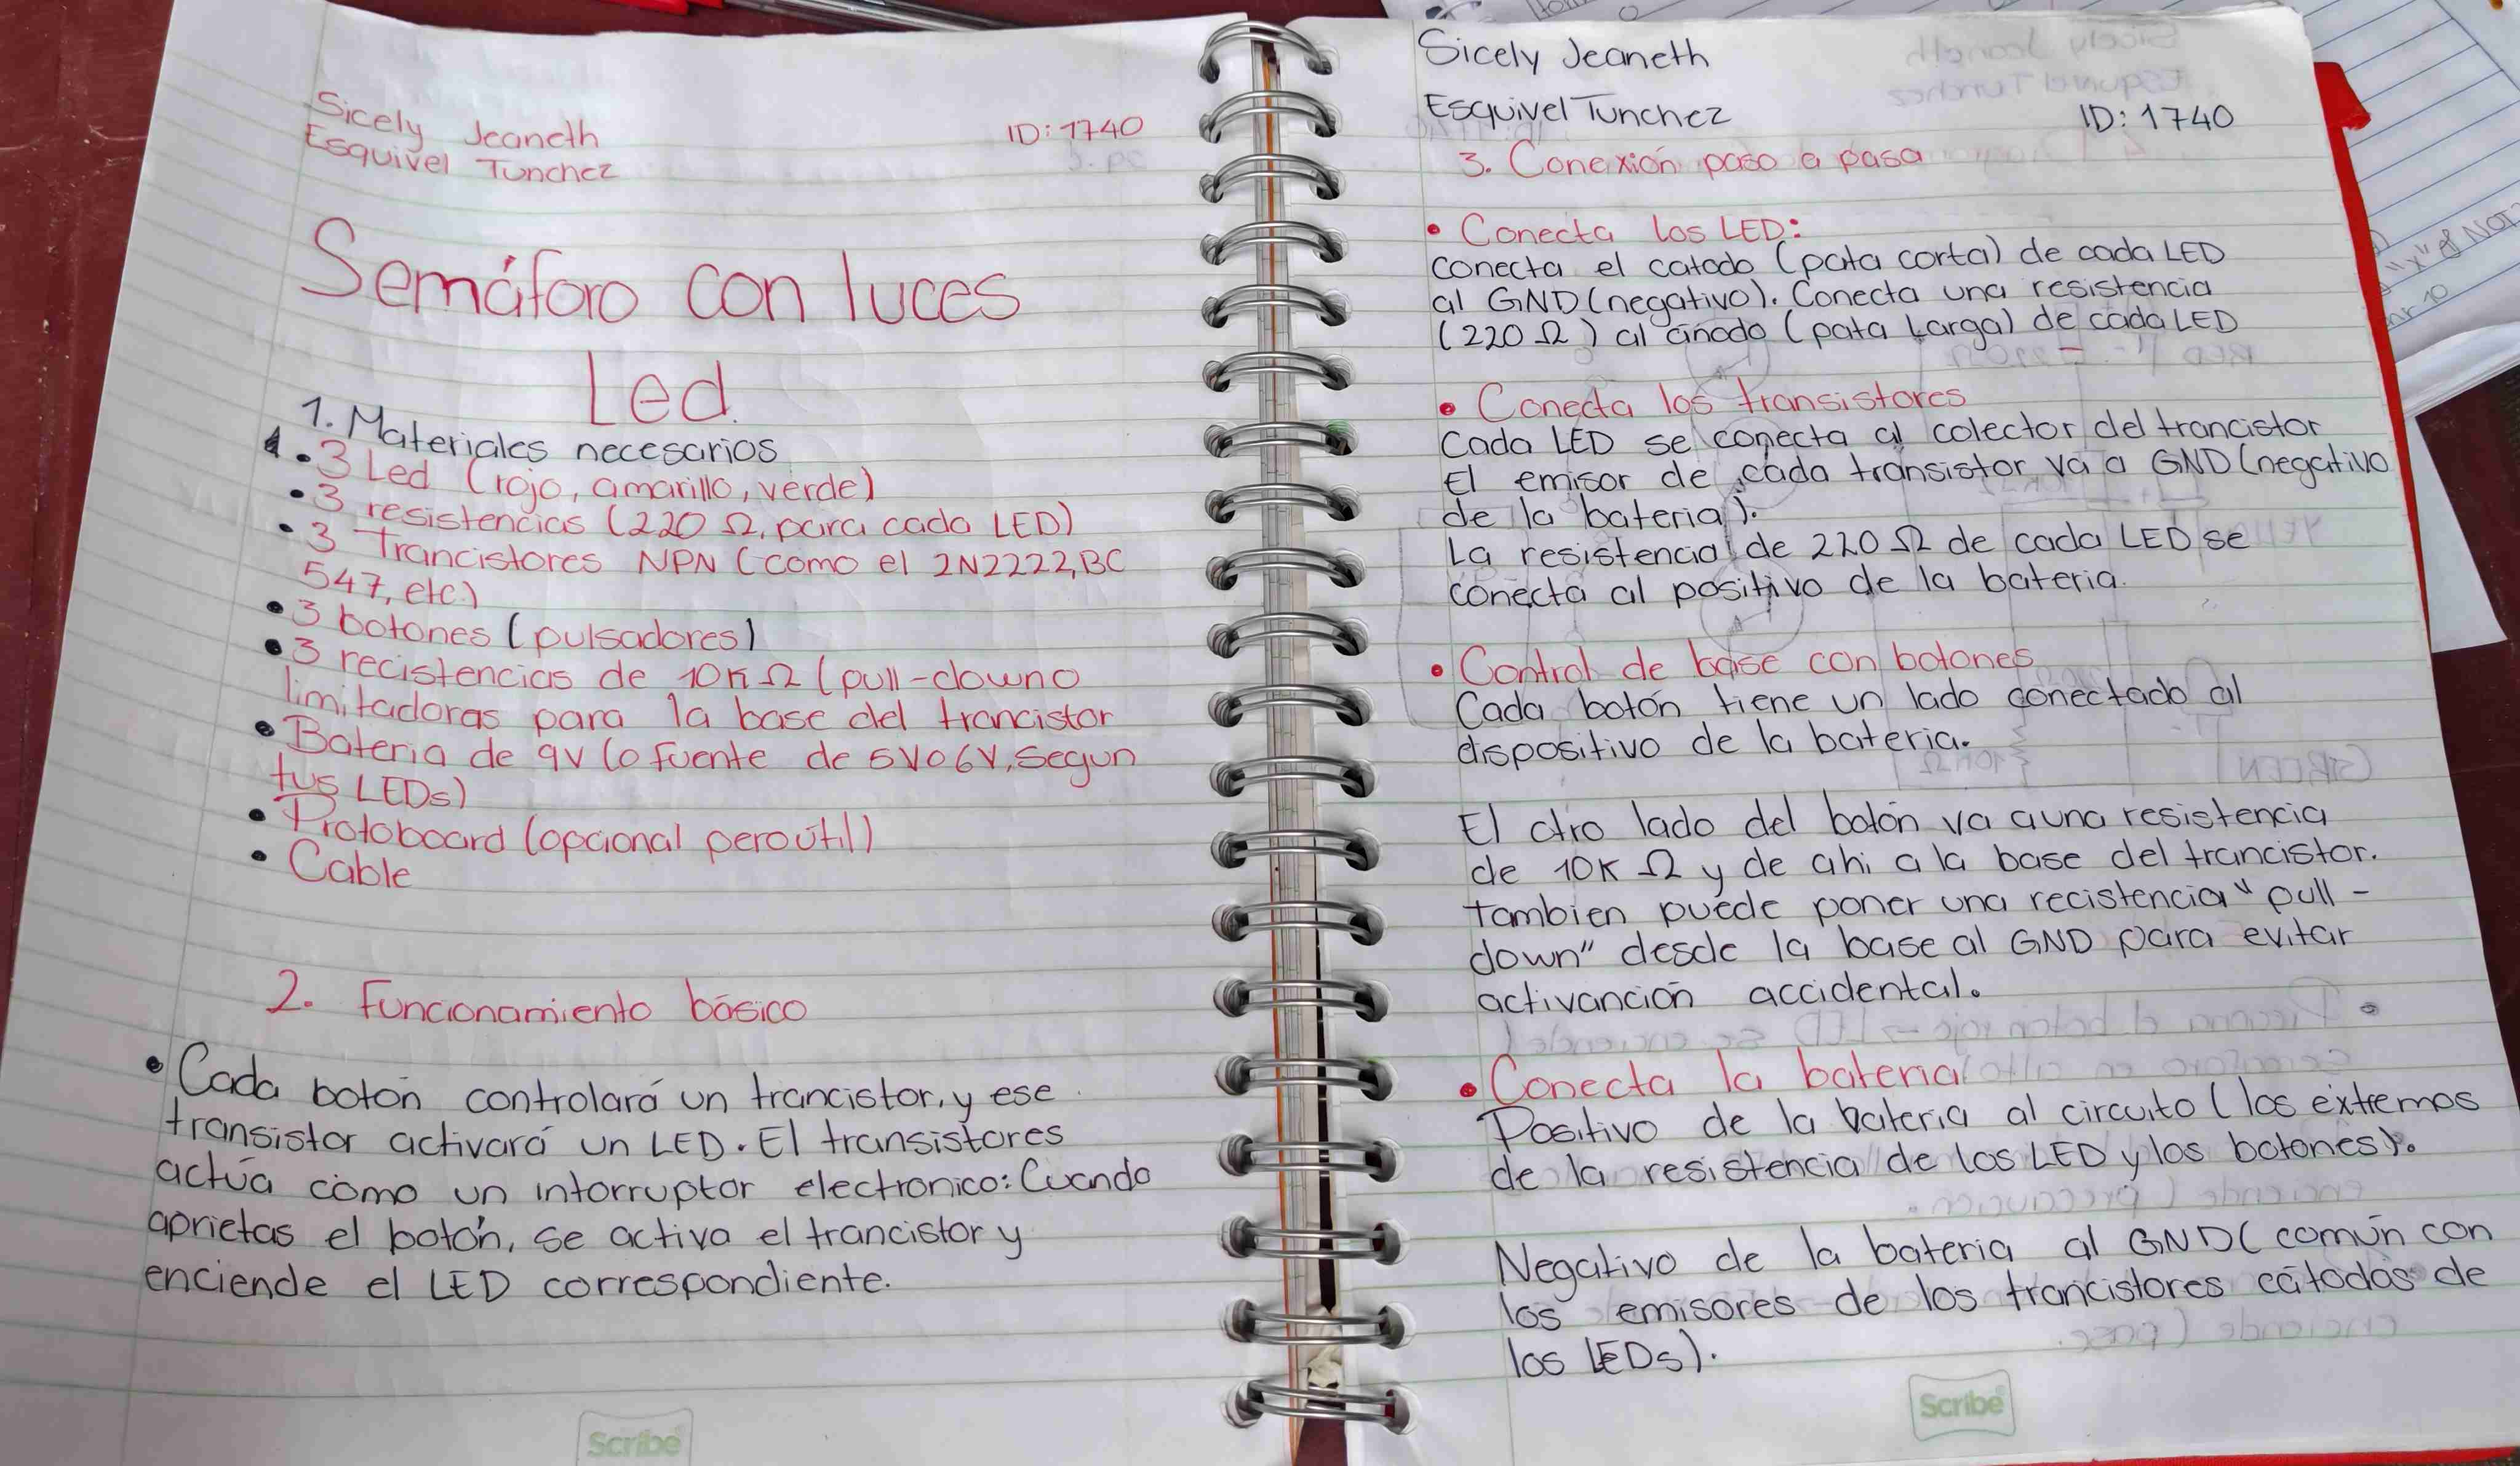 Sicely Jeaneth
Esquivel Tunchez
ID: 1740
Semáforo con luces
Led.
1. Materiales necesarios
• 3 Led (rojo, amarillo, verde)
• 3 resistencias (220 Ω, para cada LED)
• 3 Trancistores NPN (como el 2N2222, BC
547, etc.)
• 3 botones (pulsadores)
• 3 recistencias de 10K Ω (pull-downo
limitadoras para la base del trancistor
• Bateria de 9V (o fuente de 5V o 6V, segun
tus LEDs)
• Protoboard (opcional pero útil)
• Cable
2. Funcionamiento básico
• Cada botón controlará un trancistor, y ese
transistor activará un LED. El transistores
actúa como un intorruptor electronico: Cuando
aprietas el botón, se activa el trancistor y
enciende el LED correspondiente.
Scribe
Sicely Jeaneth
Esquivel Tunchez
ID: 1740
3. Conexión paso a pasa
• Conecta los LED:
conecta el catodo (pata corta) de cada LED
al GND (negativo). Conecta una resistencia
(220 Ω) al ánodo (pata Larga) de cada LED
• Conecta los transistores
Cada LED se conecta al colector del trancistor
El emisor de cada transistor va a GND (negativo
de la bateria).
La resistencia de 220 Ω de cada LED se
conecta al positivo de la bateria.
• Control de base con botones
Cada botón tiene un lado conectado al
dispositivo de la bateria.
El otro lado del botón va a una resistencia
de 10K Ω y de ahi a la base del trancistor.
Tambien puede poner una recistencia "pull-
down" desde la base al GND para evitar
activanción accidental.
• Conecta la bateria
Positivo de la bateria al circuito (los extremos
de la resistencia de los LED y los botones).
Negativo de la bateria al GND (común con
los emisores de los trancistores cátodos de
los LEDs).
Scribe